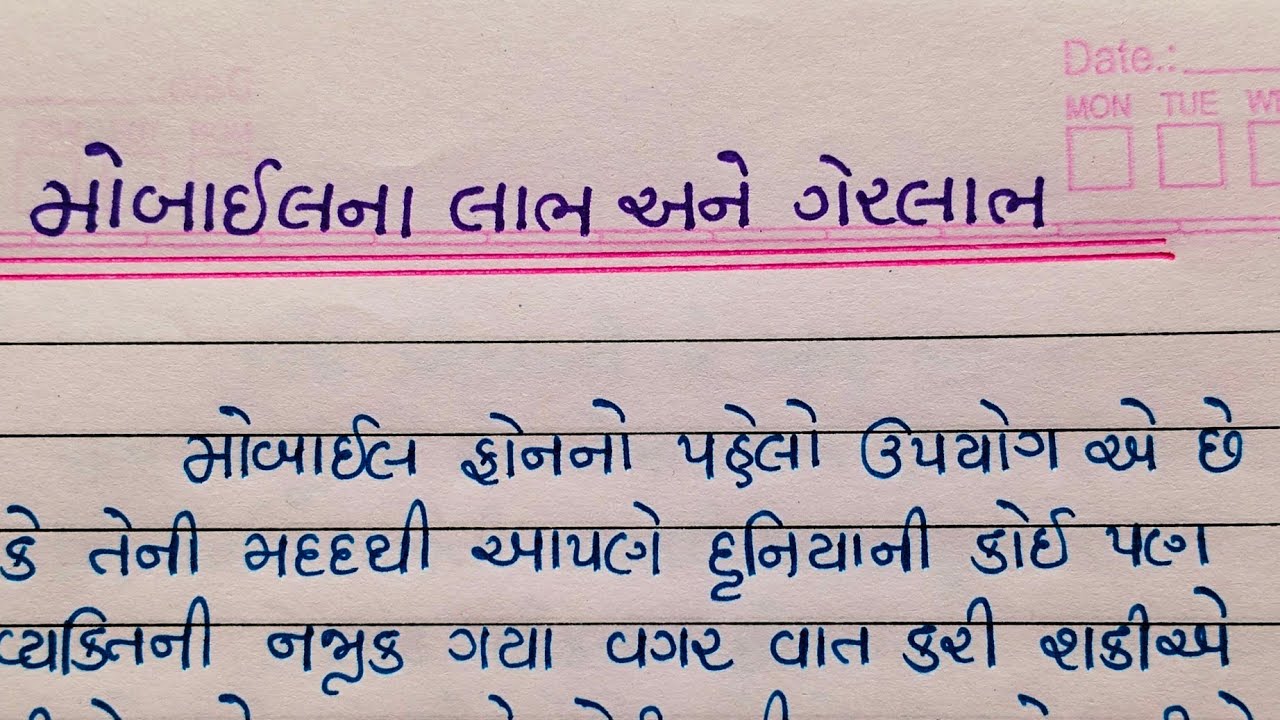 Date.:
MON TUE
મોબાઈલના લાભ અને ગેરલાભ
મોબાઈલ ફોનનો પહેલો ઉપયોગ એ છે
કે તેની મદદથી આપણે દુનિયાની કોઈ પણ
વ્યક્તિની નજીક ગયા વગર વાત કરી શકીએ